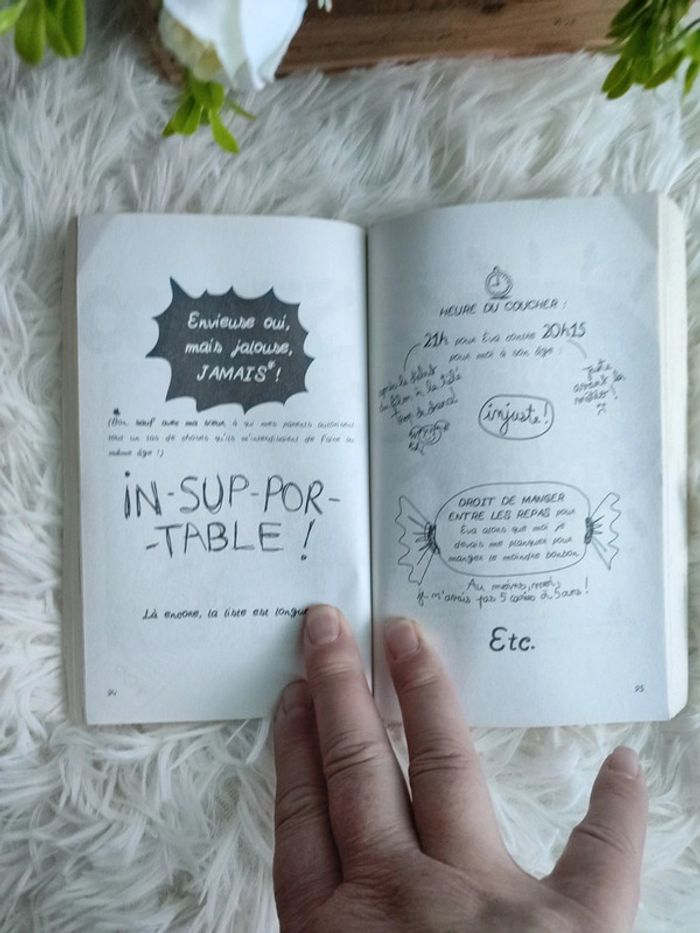 Envieuse oui,
mais jalouse,
JAMAIS*!
* (Bon, sauf avec ma sœur à qui mes parents autorisent
tout un tas de choses qu'ils m'interdisaient de faire au
même âge !)
IN-SUP-POR-
-TABLE !
Là encore, la liste est longue
94
HEURE DU COUCHER :
21h pour Eva contre 20h15
pour moi à son âge :
après le début
du film à la télé
juste
avant les
injuste!
DROIT DE MANGER
ENTRE LES REPAS pour
Eva alors que moi je
devais me planquer pour
manger le moindre bonbon
Au moins, moi,
j'avais pas 5 caries à 5 ans !
Etc.
95